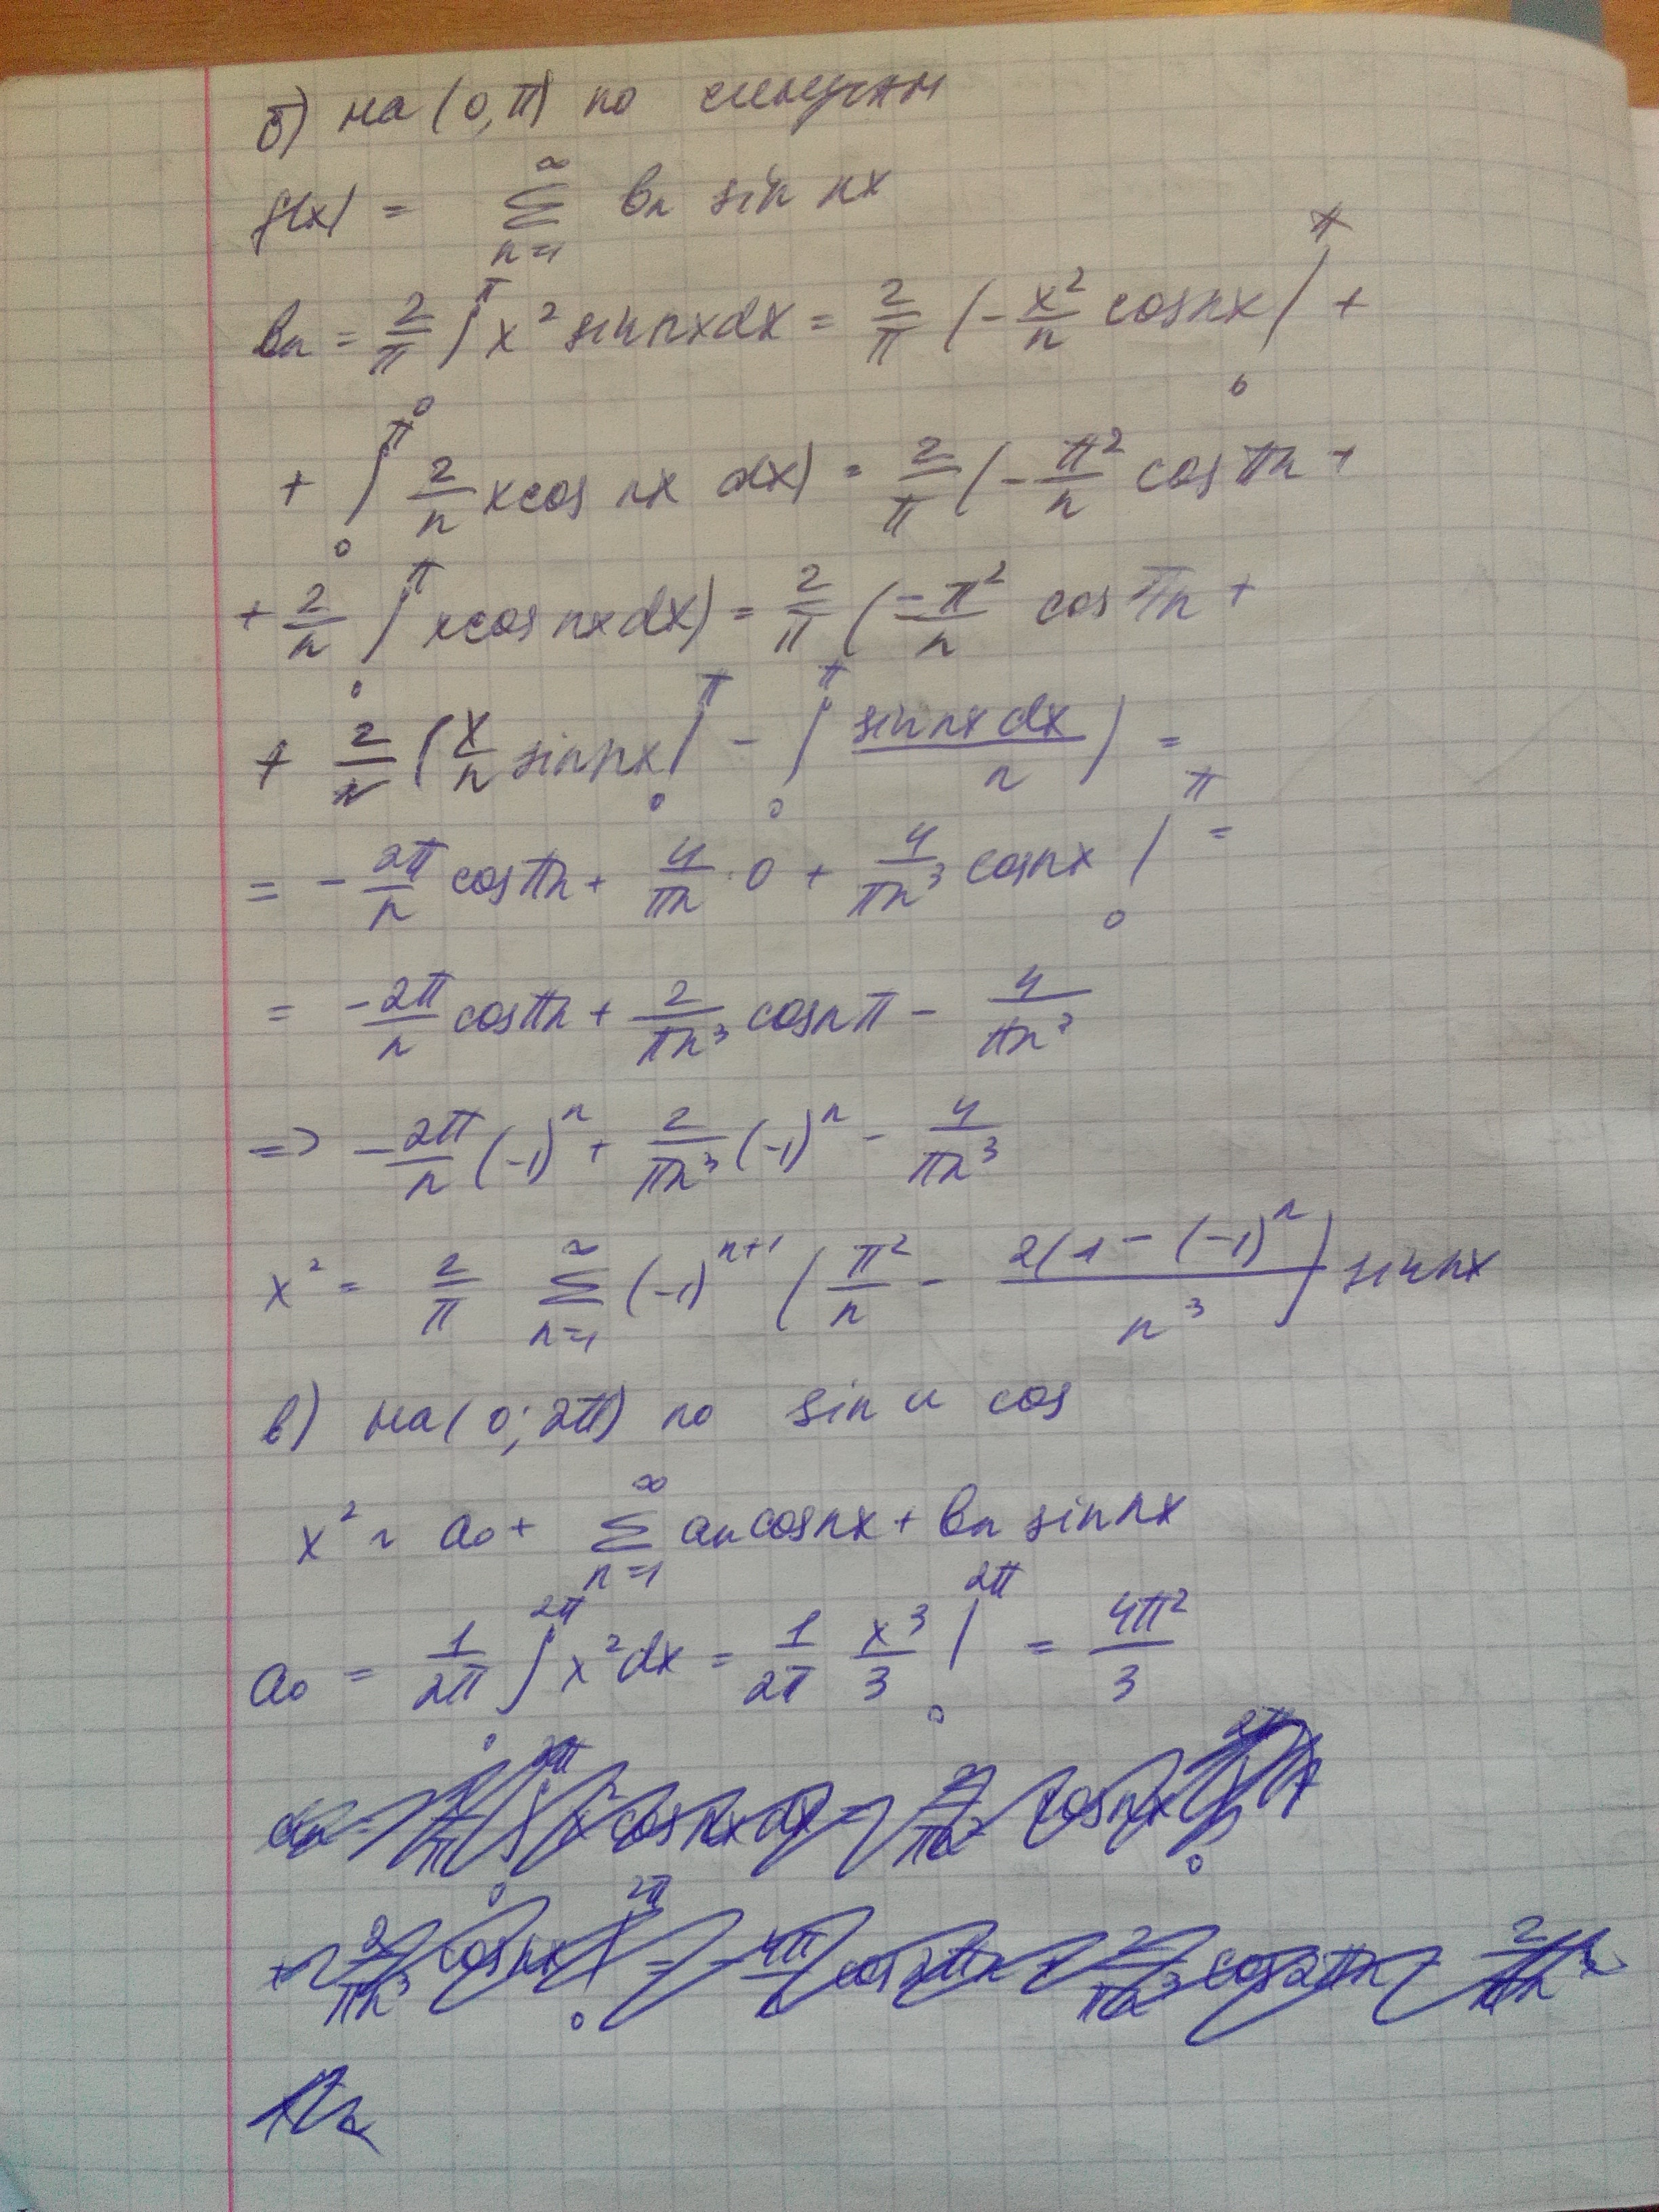 б) на (0, π) по синусам
f(x) = ∑_{n=1}^{∞} bₙ sin nx
bₙ = 2/π ∫_0^π x² sin nx dx = 2/π (- x²/n cos nx |_0^π +
+ ∫_0^π 2/n x cos nx dx) = 2/π (- π²/n cos πn +
+ 2/n ∫_0^π x cos nx dx) = 2/π (-π²/n cos πn +
+ 2/n (x/n sin nx |_0^π - ∫_0^π sin nx dx/n) =
= - 2π/n cos πn + 4/πn · 0 + 4/πn³ cos nx |_0^π =
= -2π/n cos πn + 2/πn³ cos nπ - 4/πn³
=> -2π/n (-1)ⁿ + 2/πn³ (-1)ⁿ - 4/πn³
x² = 2/π ∑_{n=1}^{∞} (-1)^{n+1} (π²/n - 2(1 - (-1)ⁿ/n³) sin nx
в) на (0; 2π) по sin и cos
x² ~ a₀ + ∑_{n=1}^{∞} aₙ cos nx + bₙ sin nx
a₀ = 1/2π ∫_0^{2π} x² dx = 1/2π x³/3 |_0^{2π} = 4π²/3